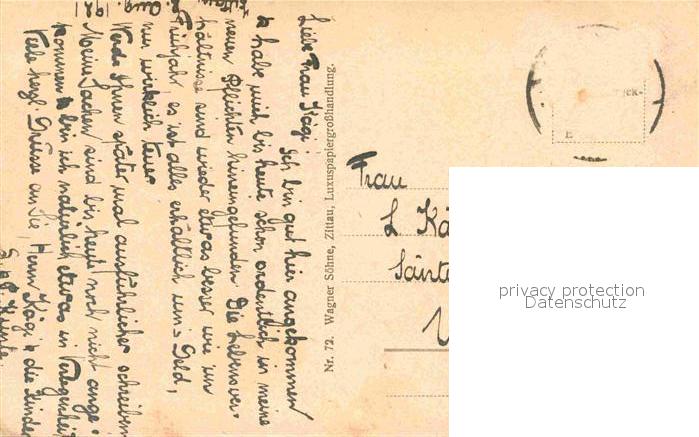 Zittau,
Aug. 1921
Liebe Frau Kägi! Ich bin gut hier angekommen
u. habe mich bis heute schon ordentlich in meine
neuen Pflichten hineingefunden. Die Lebensver-
hältnisse sind wieder etwas besser wie im
Frühjahr, es ist alles erhältlich um's Geld,
nur wirklich teuer.
Werde Ihnen später mal ausführlicher schreiben
Meine Sachen sind bis heute noch nicht ange-
kommen u. bin ich natürlich etwas in Verlegenheit
Viele herzl. Grüsse an Sie, Herrn Kägi u. die Kinder
Nr. 72. Wagner Söhne, Zittau, Luxuspapiergroßhandlung.
Frau
L Kä
privacy protection
Datenschutz